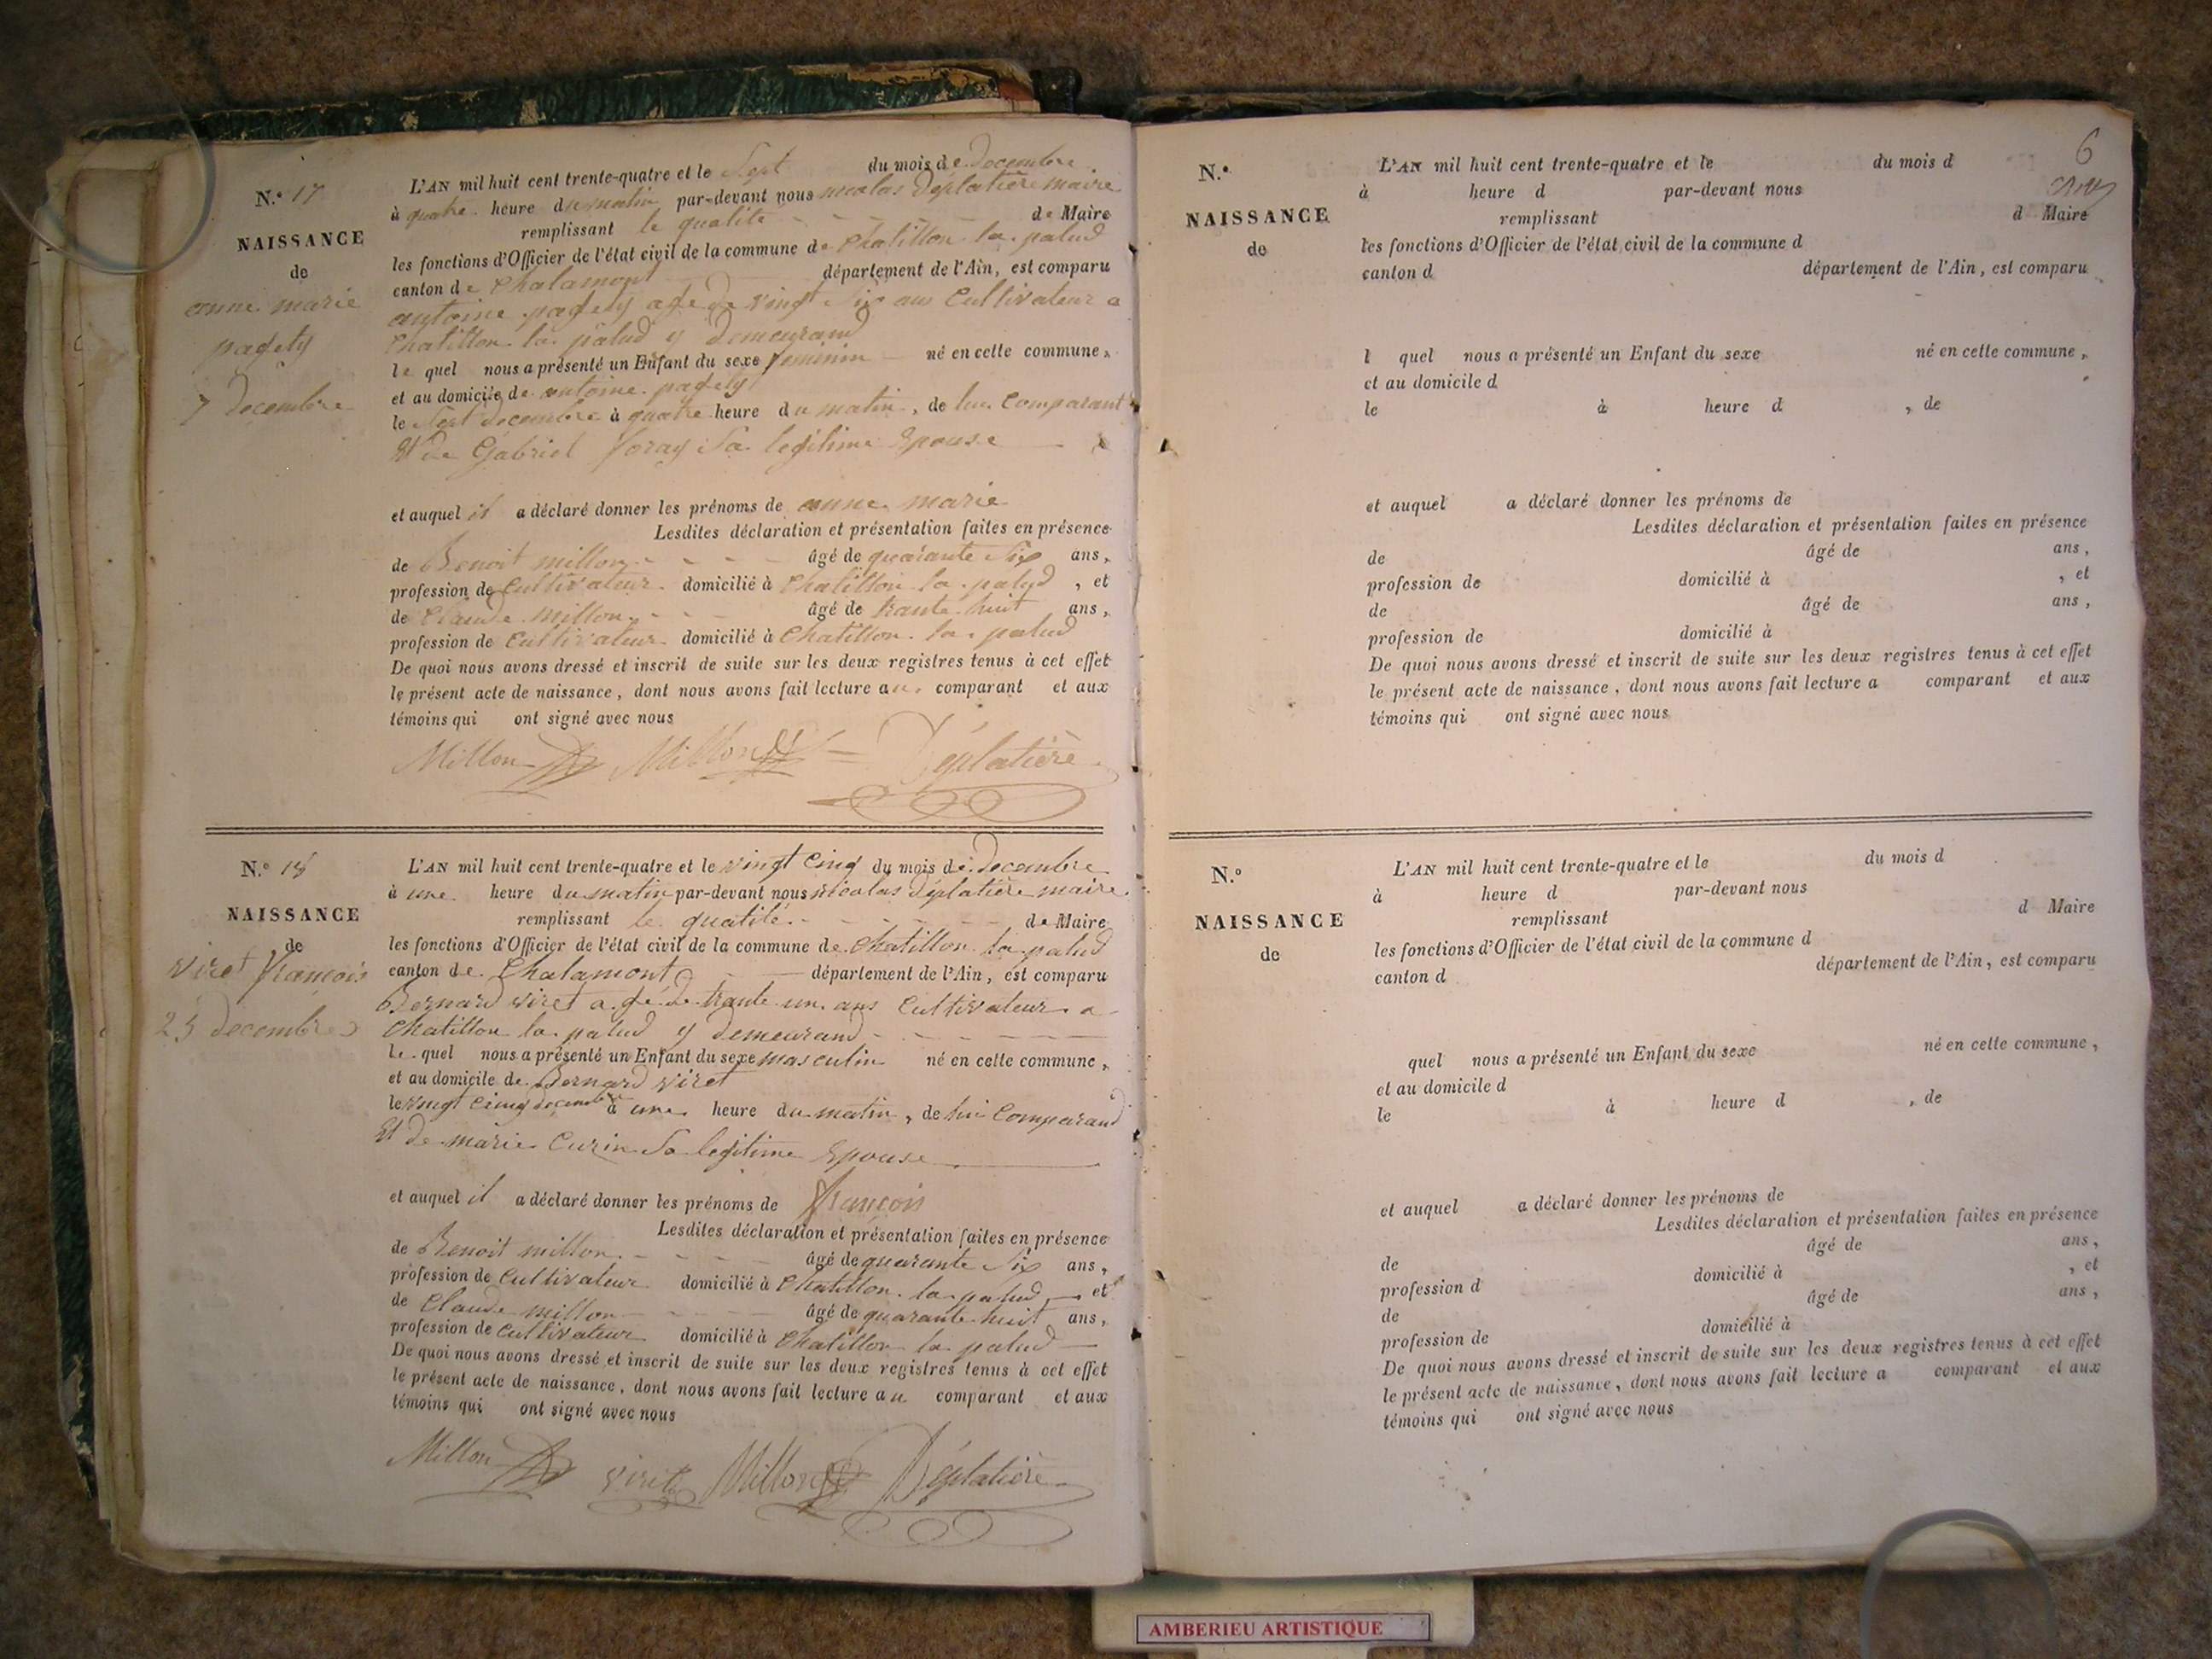 N.° 17
NAISSANCE
de
anne marie
pagety
7 decembre
L'AN mil huit cent trente-quatre et le Sept du mois de decembre
à quatre heure du matin par-devant nous nicolas Déplatière maire
remplissant le qualité de Maire
les fonctions d'Officier de l'état civil de la commune de Chatillon la palud
canton de Chalamont département de l'Ain, est comparu
antoine pagety agé de vingt Six ans Cultivateur a
Chatillon la palud y Demeurand
le quel nous a présenté un Enfant du sexe feminin né en cette commune,
et au domicile de antoine pagety
le Sept decembre à quatre heure du matin, de lui Comparant
Et de Gabriel foray Sa legitime Epouse
et auquel il a déclaré donner les prénoms de anne marie
Lesdites déclaration et présentation faites en présence
de Benoit millon âgé de quarante Six ans,
profession de Cultivateur domicilié à Chatillon la palud, et
de Claude millon âgé de trante huit ans,
profession de Cultivateur domicilié à Chatillon la palud
De quoi nous avons dressé et inscrit de suite sur les deux registres tenus à cet effet
le présent acte de naissance, dont nous avons fait lecture au comparant et aux
témoins qui ont signé avec nous
Millon Millon Déplatière
N.° 18
NAISSANCE
de
Viret françois
25 decembre
L'AN mil huit cent trente-quatre et le vingt Cinq du mois de decembre
à une heure du matin par-devant nous nicolas Déplatière maire
remplissant le qualité de Maire
les fonctions d'Officier de l'état civil de la commune de Chatillon la palud
canton de Chalamont département de l'Ain, est comparu
Bernard viret agé de trante un ans Cultivateur a
Chatillon la palud y Demeurand
le quel nous a présenté un Enfant du sexe masculin né en cette commune,
et au domicile de Bernard viret
le vingt Cinq decembre à une heure du matin, de lui Comparand
Et de marie Curin Sa legitime Epouse
et auquel il a déclaré donner les prénoms de françois
Lesdites déclaration et présentation faites en présence
de Benoit millon âgé de quarante Six ans,
profession de Cultivateur domicilié à Chatillon la palud et
de Claude millon âgé de quarante huit ans,
profession de Cultivateur domicilié à Chatillon la palud
De quoi nous avons dressé et inscrit de suite sur les deux registres tenus à cet effet
le présent acte de naissance, dont nous avons fait lecture au comparant et aux
témoins qui ont signé avec nous
Millon viret Millon Déplatière
6
N.°
NAISSANCE
de
L'AN mil huit cent trente-quatre et le du mois d
à heure d par-devant nous
remplissant d Maire
les fonctions d'Officier de l'état civil de la commune d
canton d département de l'Ain, est comparu
l quel nous a présenté un Enfant du sexe né en cette commune,
et au domicile d
le à heure d , de
et auquel a déclaré donner les prénoms de
Lesdites déclaration et présentation faites en présence
de âgé de ans,
profession de domicilié à , et
de âgé de ans,
profession de domicilié à
De quoi nous avons dressé et inscrit de suite sur les deux registres tenus à cet effet
le présent acte de naissance, dont nous avons fait lecture a comparant et aux
témoins qui ont signé avec nous
N.°
NAISSANCE
de
L'AN mil huit cent trente-quatre et le du mois d
à heure d par-devant nous
remplissant d Maire
les fonctions d'Officier de l'état civil de la commune d
canton d département de l'Ain, est comparu
quel nous a présenté un Enfant du sexe né en cette commune,
et au domicile d
le à heure d , de
et auquel a déclaré donner les prénoms de
Lesdites déclaration et présentation faites en présence
de âgé de ans,
profession d domicilié à , et
de âgé de ans,
profession de domicilié à
De quoi nous avons dressé et inscrit de suite sur les deux registres tenus à cet effet
le présent acte de naissance, dont nous avons fait lecture a comparant et aux
témoins qui ont signé avec nous
AMBERIEU ARTISTIQUE